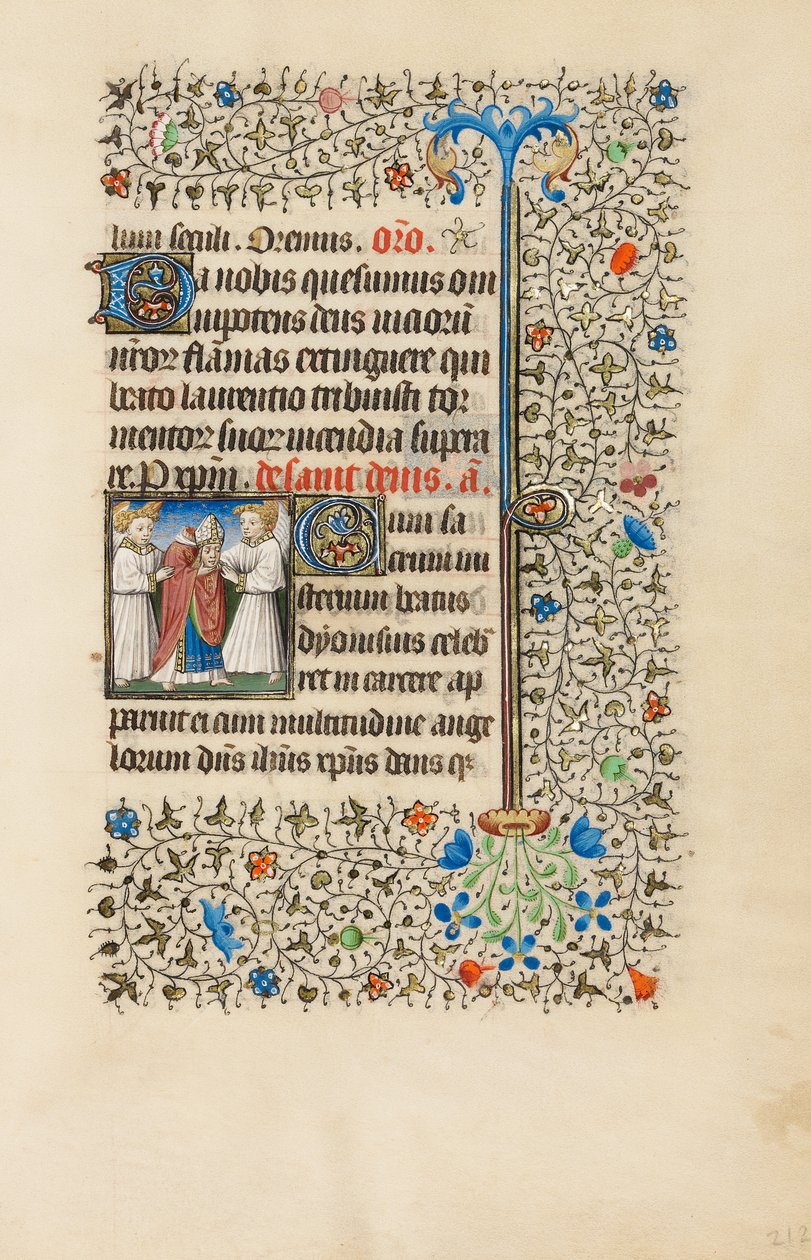 lum seculi. Oremus. orō.
Da nobis quesumus om
nipotens deus uiciorū
nr̄oꝝ flāmas extinguere qui
beato laurentio tribuisti toꝝ
mentoꝝ suoꝝ incendia supera
re. P xp̄m. de sanct denis. ā.
Cum sa
crum mi
sterium beatus
dyonisius celeb
ret in carcere ap
paruit ei cum multitudine ange
lorum dn̄s ih̄us xp̄us dans qꝫ
213